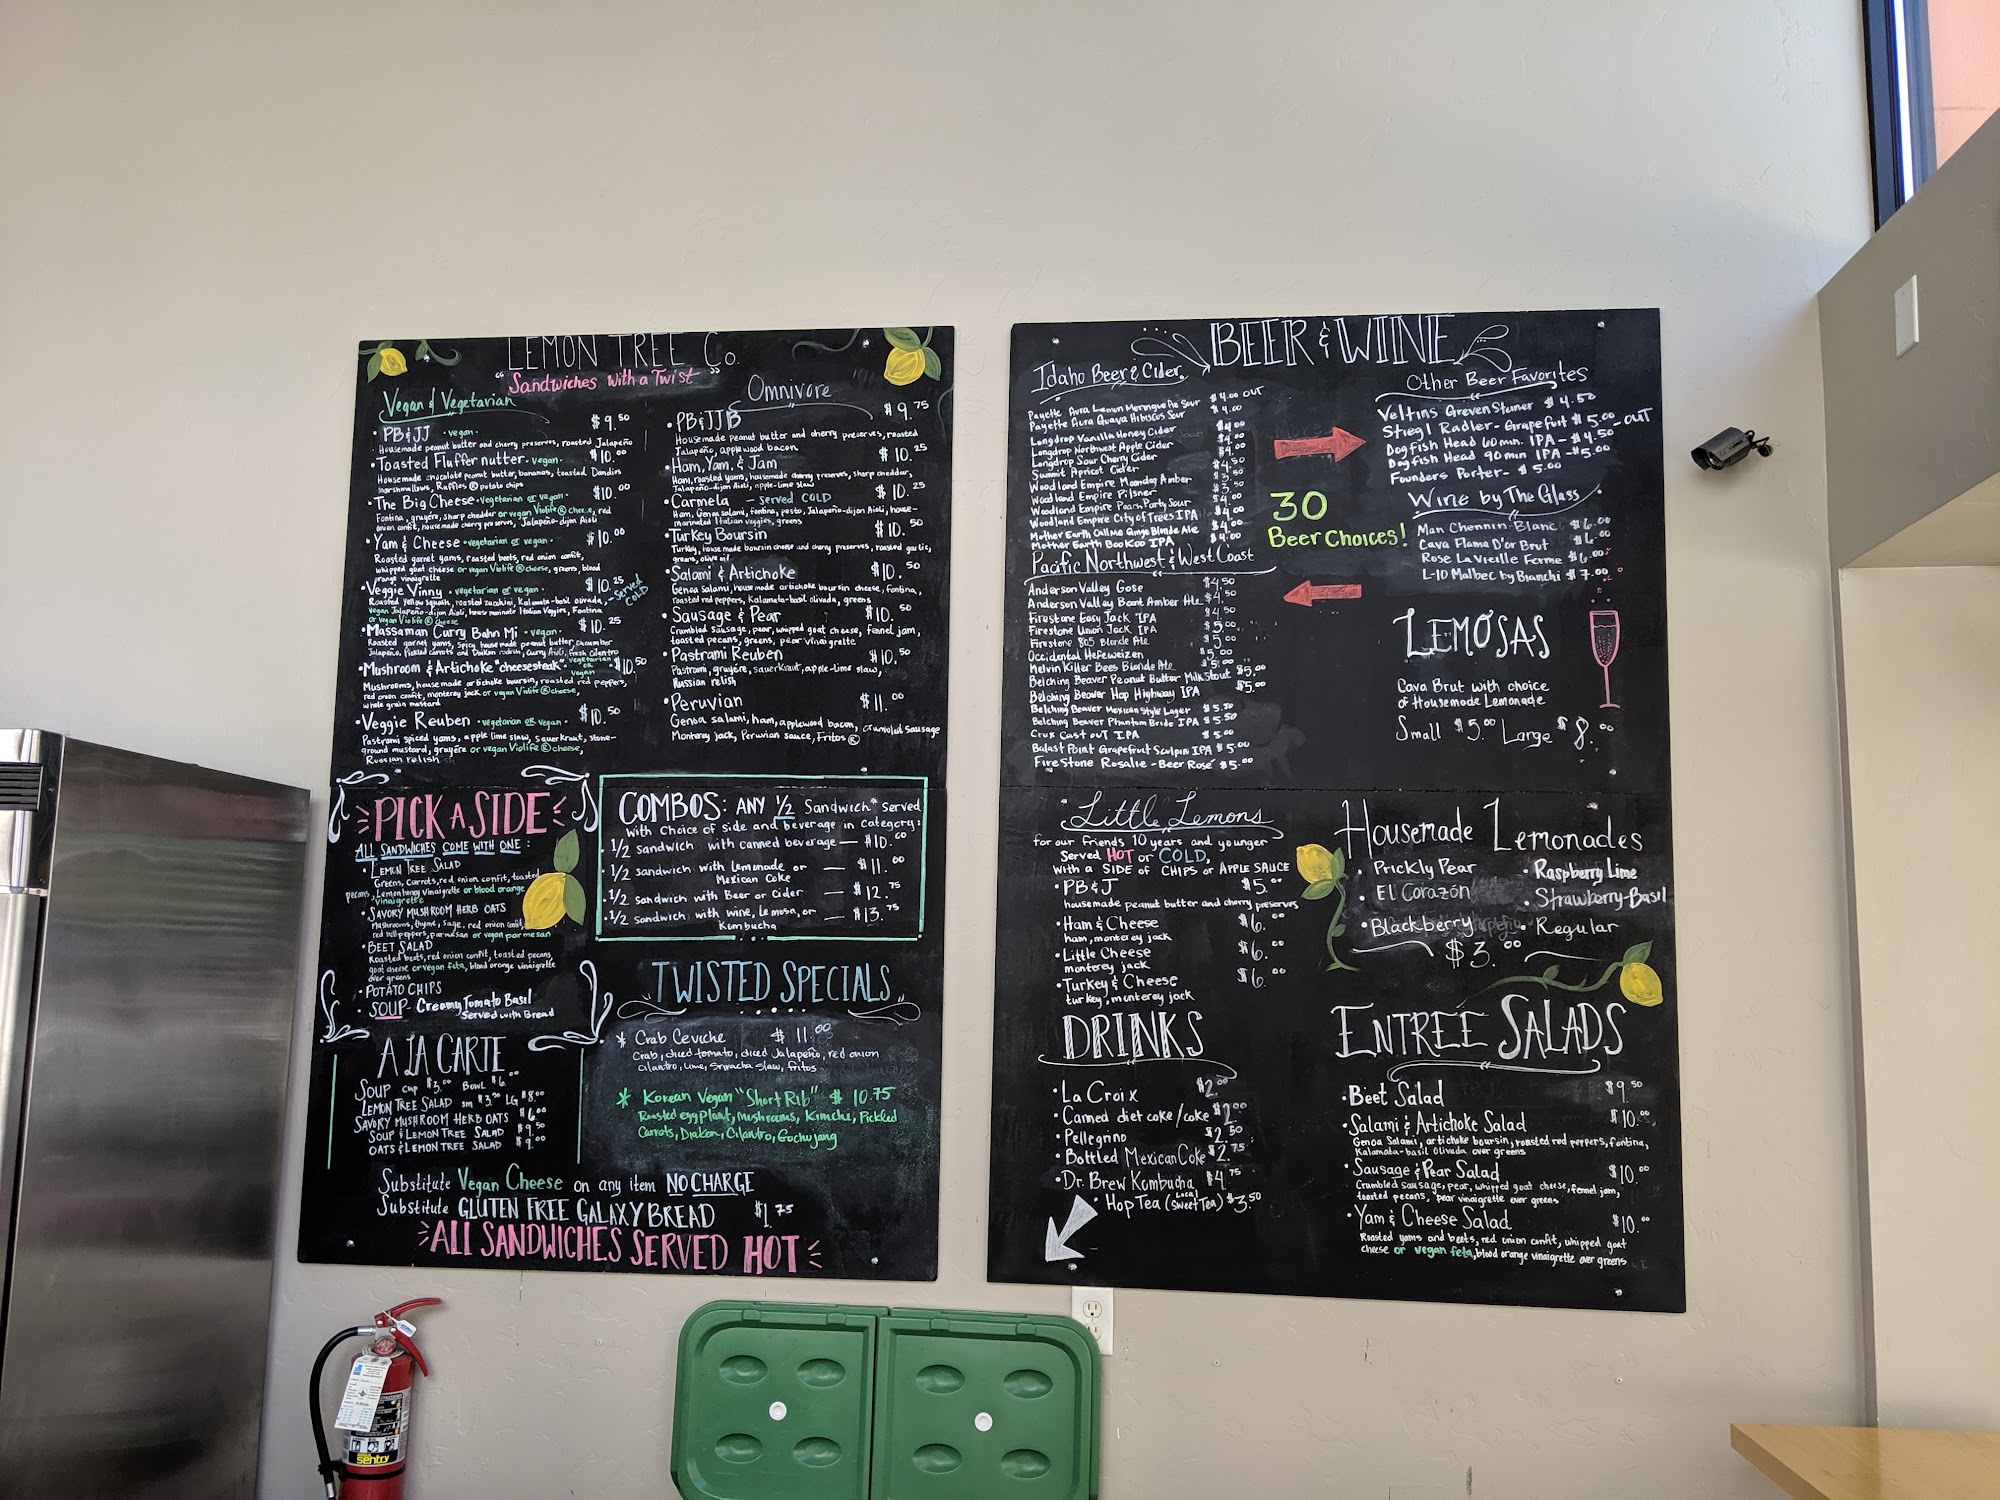 LEMON TREE Co.
"Sandwiches with a Twist"
Vegan & Vegetarian
• PB&JJ • vegan • $9.50
Housemade peanut butter and cherry preserves, roasted Jalapeño
• Toasted Fluffernutter • vegan • $10.00
Housemade chocolate peanut butter, bananas, toasted Dandies
marshmallows, Ruffles® potato chips
• The Big Cheese • vegetarian or vegan • $10.00
Fontina, gruyére, sharp cheddar or vegan Violife® cheese, red
onion confit, housemade cherry preserves, Jalapeño-dijon Aioli
• Yam & Cheese • vegetarian or vegan • $10.00
Roasted garnet yams, roasted beets, red onion confit,
whipped goat cheese or vegan Violife® cheese, greens, blood
orange vinaigrette
• Veggie Vinny • vegetarian or vegan • $10.25 - Served COLD
Roasted Yellow squash, roasted zucchini, Kalamata-basil olivada,
vegan Jalapeño-dijon Aioli, house marinate Italian Veggies, Fontina
or vegan Violife® cheese
• Massaman Curry Bahn Mi • vegan • $10.25
Roasted garnet yams, spicy housemade peanut butter, cucumber
Jalapeño, Pickled carrots and Daikon radish, Curry Aioli, fresh cilantro
• Mushroom & Artichoke "cheesesteak" vegetarian or vegan $10.50
Mushrooms, housemade artichoke boursin, roasted red peppers,
red onion confit, monterey jack or vegan Violife® cheese,
whole grain mustard
• Veggie Reuben • vegetarian or vegan • $10.50
Pastrami spiced yams, apple lime slaw, sauerkraut, stone-
ground mustard, gruyére or vegan Violife® cheese,
Russian relish
Omnivore
• PB&JJB $9.75
Housemade peanut butter and cherry preserves, roasted
Jalapeño, applewood bacon
• Ham, Yam, & Jam $10.25
Ham, roasted yams, housemade cherry preserves, sharp cheddar,
Jalapeño-dijon Aioli, apple-lime slaw
• Carmela - Served COLD $10.25
Ham, Genoa salami, fontina, pesto, Jalapeño-dijon Aioli, house-
marinated Italian veggies, greens
• Turkey Boursin $10.50
Turkey, house made boursin cheese and cherry preserves, roasted garlic,
greens, olive oil
• Salami & Artichoke $10.50
Genoa salami, house made artichoke boursin cheese, fontina,
roasted red peppers, Kalamata-basil olivada, greens
• Sausage & Pear $10.50
Crumbled Sausage, pear, whipped goat cheese, fennel jam,
toasted pecans, greens, pear vinaigrette
• Pastrami Reuben $10.50
Pastrami, gruyére, sauerkraut, apple-lime slaw,
Russian relish
• Peruvian $11.00
Genoa salami, ham, applewood bacon, crumbled sausage
Monterey jack, Peruvian sauce, Fritos®
PICK A SIDE
ALL SANDWICHES COME WITH ONE:
• LEMON TREE SALAD
Greens, carrots, red onion confit, toasted
pecans, Lemon honey vinaigrette or blood orange
vinaigrette
• SAVORY MUSHROOM HERB OATS
Mushrooms, thyme, sage, red onion confit,
red bell peppers, parmesan or vegan parmesan
• BEET SALAD
Roasted beets, red onion confit, toasted pecans,
goat cheese or vegan feta, blood orange vinaigrette
over greens
• POTATO CHIPS
• SOUP - Creamy Tomato Basil
Served with Bread
COMBOS: ANY 1/2 Sandwich* Served
With Choice of side and beverage in Category:
• 1/2 sandwich with canned beverage — $10.00
• 1/2 sandwich with Lemonade or — $11.00
Mexican Coke
• 1/2 sandwich with Beer or Cider — $12.75
• 1/2 sandwich with wine, Lemosa, or — $13.75
Kombucha
A LA CARTE
SOUP cup $3.00 BOWL $6.
LEMON TREE SALAD sm $3.50 LG $8.00
SAVORY MUSHROOM HERB OATS $6.00
SOUP & LEMON TREE SALAD $9.50
OATS & LEMON TREE SALAD $9.00
TWISTED SPECIALS
* Crab Ceviche $11.00
Crab, diced tomato, diced Jalapeño, red onion
cilantro, lime, Sriracha slaw, fritos
* Korean Vegan "Short Rib" $10.75
Roasted eggplant, mushrooms, Kimchi, Pickled
Carrots, Diakon, Cilantro, Gochujang
Substitute Vegan Cheese on any item NO CHARGE
Substitute GLUTEN FREE GALAXY BREAD $1.75
ALL SANDWICHES SERVED HOT
BEER & WINE
Idaho Beer & Cider
Payette Aura Lemon Meringue Pie Sour $4.00 OUT
Payette Aura Guava Hibiscus Sour $4.00
Longdrop Vanilla Honey Cider $4.00
Longdrop Northwest Apple Cider $4.00
Longdrop Sour Cherry Cider $4.00
Summit Apricot Cider $4.50
Woodland Empire Moondog Amber $3.50
Woodland Empire Pilsner $3.50
Woodland Empire Peach Party Sour $4.00
Woodland Empire City of Trees IPA $4.00
Mother Earth Cali Me Ginge Blonde Ale $4.00
Mother Earth Boo Koo IPA $4.00
Pacific Northwest & West Coast
Anderson Valley Gose $4.50
Anderson Valley Boont Amber Ale $4.50
Firestone Easy Jack IPA $4.50
Firestone Union Jack IPA $5.00
Firestone 805 Blonde Ale $5.00
Occidental Hefeweizen $5.00
Melvin Killer Bees Blonde Ale $5.00
Belching Beaver Peanut Butter Milk Stout $5.00
Belching Beaver Hop Highway IPA $5.00
Belching Beaver Mexican Style Lager $5.50
Belching Beaver Phantom Bride IPA $5.50
Crux Cast out IPA $5.00
Balast Point Grapefruit Sculpin IPA $5.00
FireStone Rosalie - Beer Rosé $5.00
30
Beer Choices!
Other Beer Favorites
Veltins Grevensteiner $4.50
Stiegl Radler - Grapefruit $5.00 - OUT
Dogfish Head 60 min. IPA - $4.50
Dogfish Head 90 min IPA - $5.00
Founders Porter - $5.00
Wine by The Glass
Man Chennin Blanc $6.00
Cava Flama D'or Brut $6.00
Rose La Vieille Ferme $6.00
L-10 Malbec by Bianchi $7.00
LEMOSAS
Cava Brut with choice
of Housemade Lemonade
Small $5.00 Large $8.00
Little Lemons
for our friends 10 years and younger
Served HOT or COLD,
with a SIDE of CHIPS or APPLE SAUCE
• PB&J $5.00
housemade peanut butter and cherry preserves
• Ham & Cheese $6.00
ham, monterey jack
• Little Cheese $6.00
monterey jack
• Turkey & Cheese $6.00
turkey, monterey jack
Housemade Lemonades
• Prickly Pear
• El Corazón
• Blackberry
• Raspberry Lime
• Strawberry-Basil
• Regular
$3.00
DRINKS
• La Croix $2.00
• Canned diet coke/coke $2.00
• Pellegrino $2.50
• Bottled Mexican Coke $2.75
• Dr. Brew Kombucha $4.75
• Hop Tea (Local Sweet Tea) $3.50
ENTREE SALADS
• Beet Salad $9.50
• Salami & Artichoke Salad $10.00
Genoa Salami, artichoke boursin, roasted red peppers, fontina,
Kalamata-basil Olivada over greens
• Sausage & Pear Salad $10.00
Crumbled sausage, pear, whipped goat cheese, fennel jam,
toasted pecans, pear vinaigrette over greens
• Yam & Cheese Salad $10.00
Roasted yams and beets, red onion confit, whipped goat
cheese or vegan feta, blood orange vinaigrette over greens
sentry